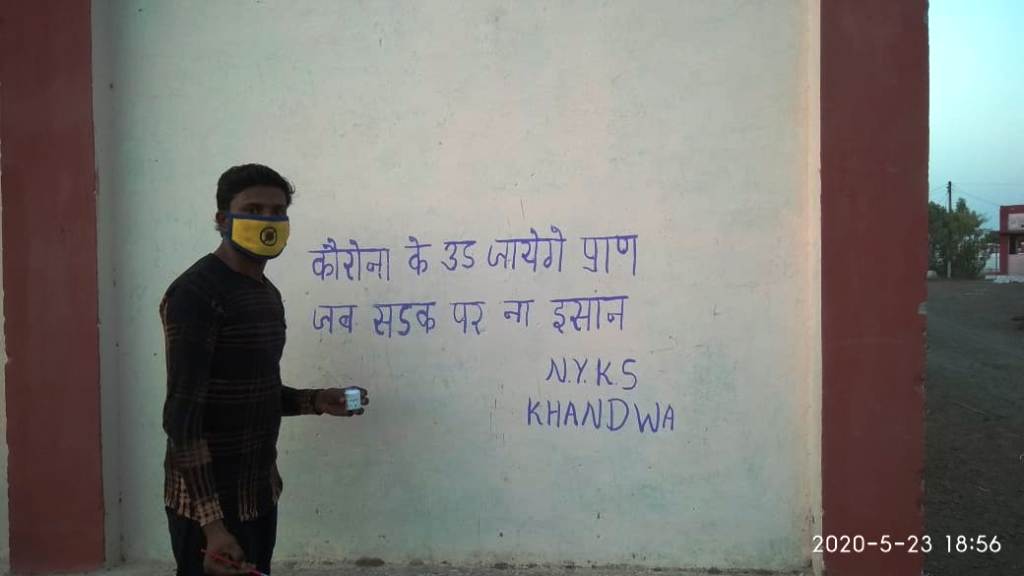 कौरोना के उड जायेगे प्राण
जब सडक पर ना इसांन
N.Y.K.S
KHANDWA
2020-5-23 18:56